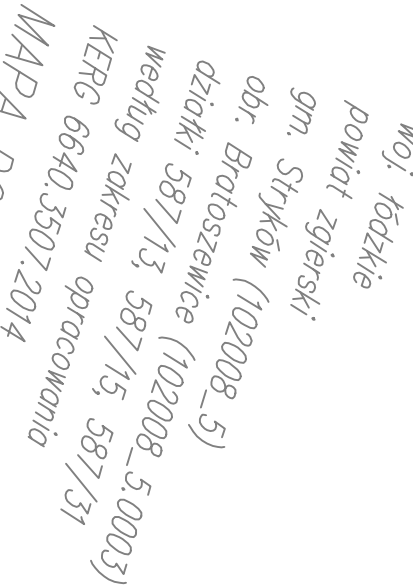 woj. łódzkie
powiat zgierski
gm. Stryków (102008_5)
obr. Bratoszewice (102008_5.0003)
działki 587/13, 587/15, 587/31
według zakresu opracowania
KERG 6640.3507.2014
MAPA